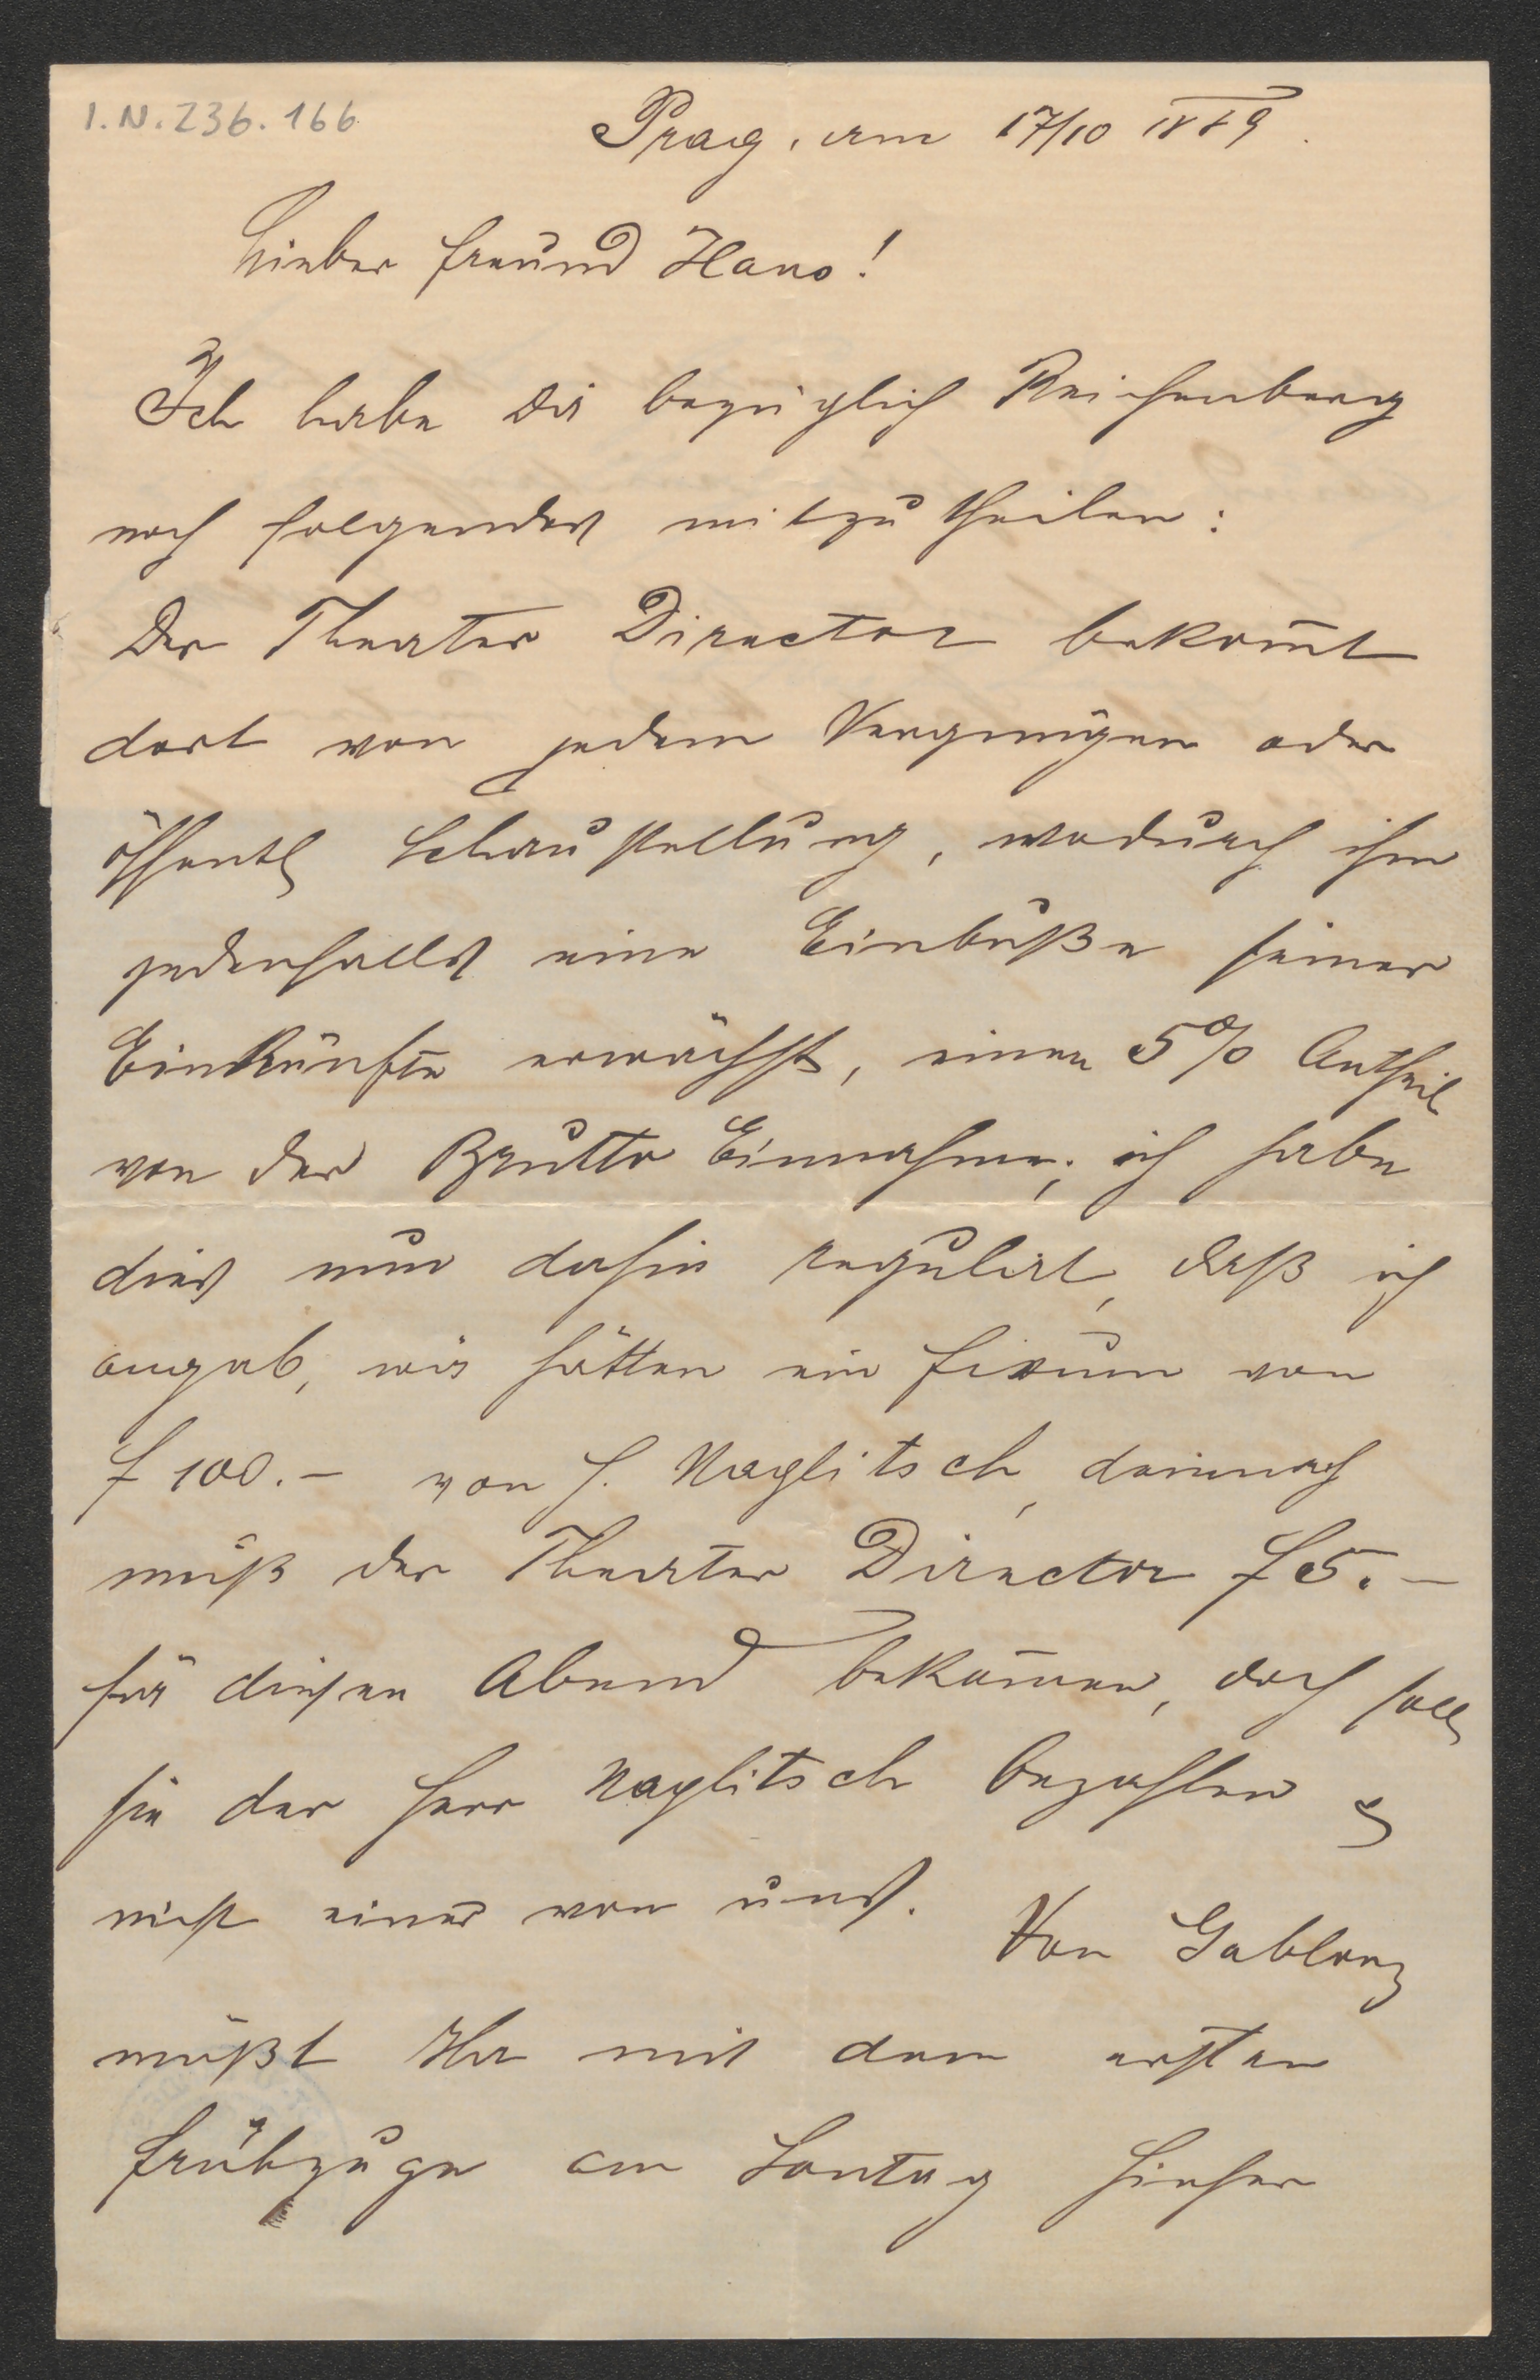 I.N. 236.166
Prag, am 17/10 1889.
Lieber Freund Hans!
Ich habe Dir bezüglich Reichenberg
noch folgendes mitzutheilen:
Der Theater Director bekom̄t
dort von jedem Vergnügen oder
öffentl Schaustellung, wodurch ihm
jedenfalls eine Einbuße seiner
Einkünfte erwächst, einen 5% Antheil
von der Brutto Einnahme; ich habe
dies nun dahin regulirt, daß ich
angab, wir hätten ein Fixum von
f 100.– von H. Naglitsch, demnach
muß der Theater Director f 5.–
für diesen Abend bekom̄en, doch soll
sie der Herr Naglitsch bezahlen &
nicht einer von uns. Von Gablonz
müßt Ihr mit dem ersten
Frühzuge am Sontag hieher